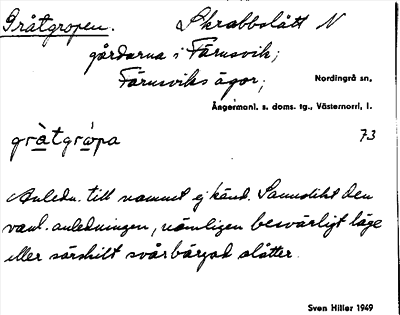 Gråtgropen. Skrabbslått N
gårdarna i Färnsvik;
Färnsviks ägor;
Nordingrå sn,
Ångermanl. s. doms. tg., Västernorrl, l.
73
Anledn. till namnet ej känd. Sannolikt den
vanl. anledningen, nämligen besvärligt läge
eller särskilt svårbärgad slåtter.
Sven Hiller 1949